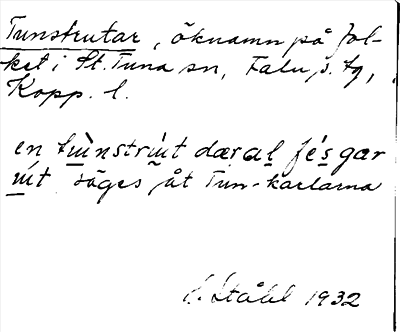 Tunstrutar, öknamn på fol-
ket i St. Tuna sn, Falu s. tg,
Kopp. l.
en tùnstrut dæral fésgær
út säges åt Tun-karlarna
H. Ståhl 1932